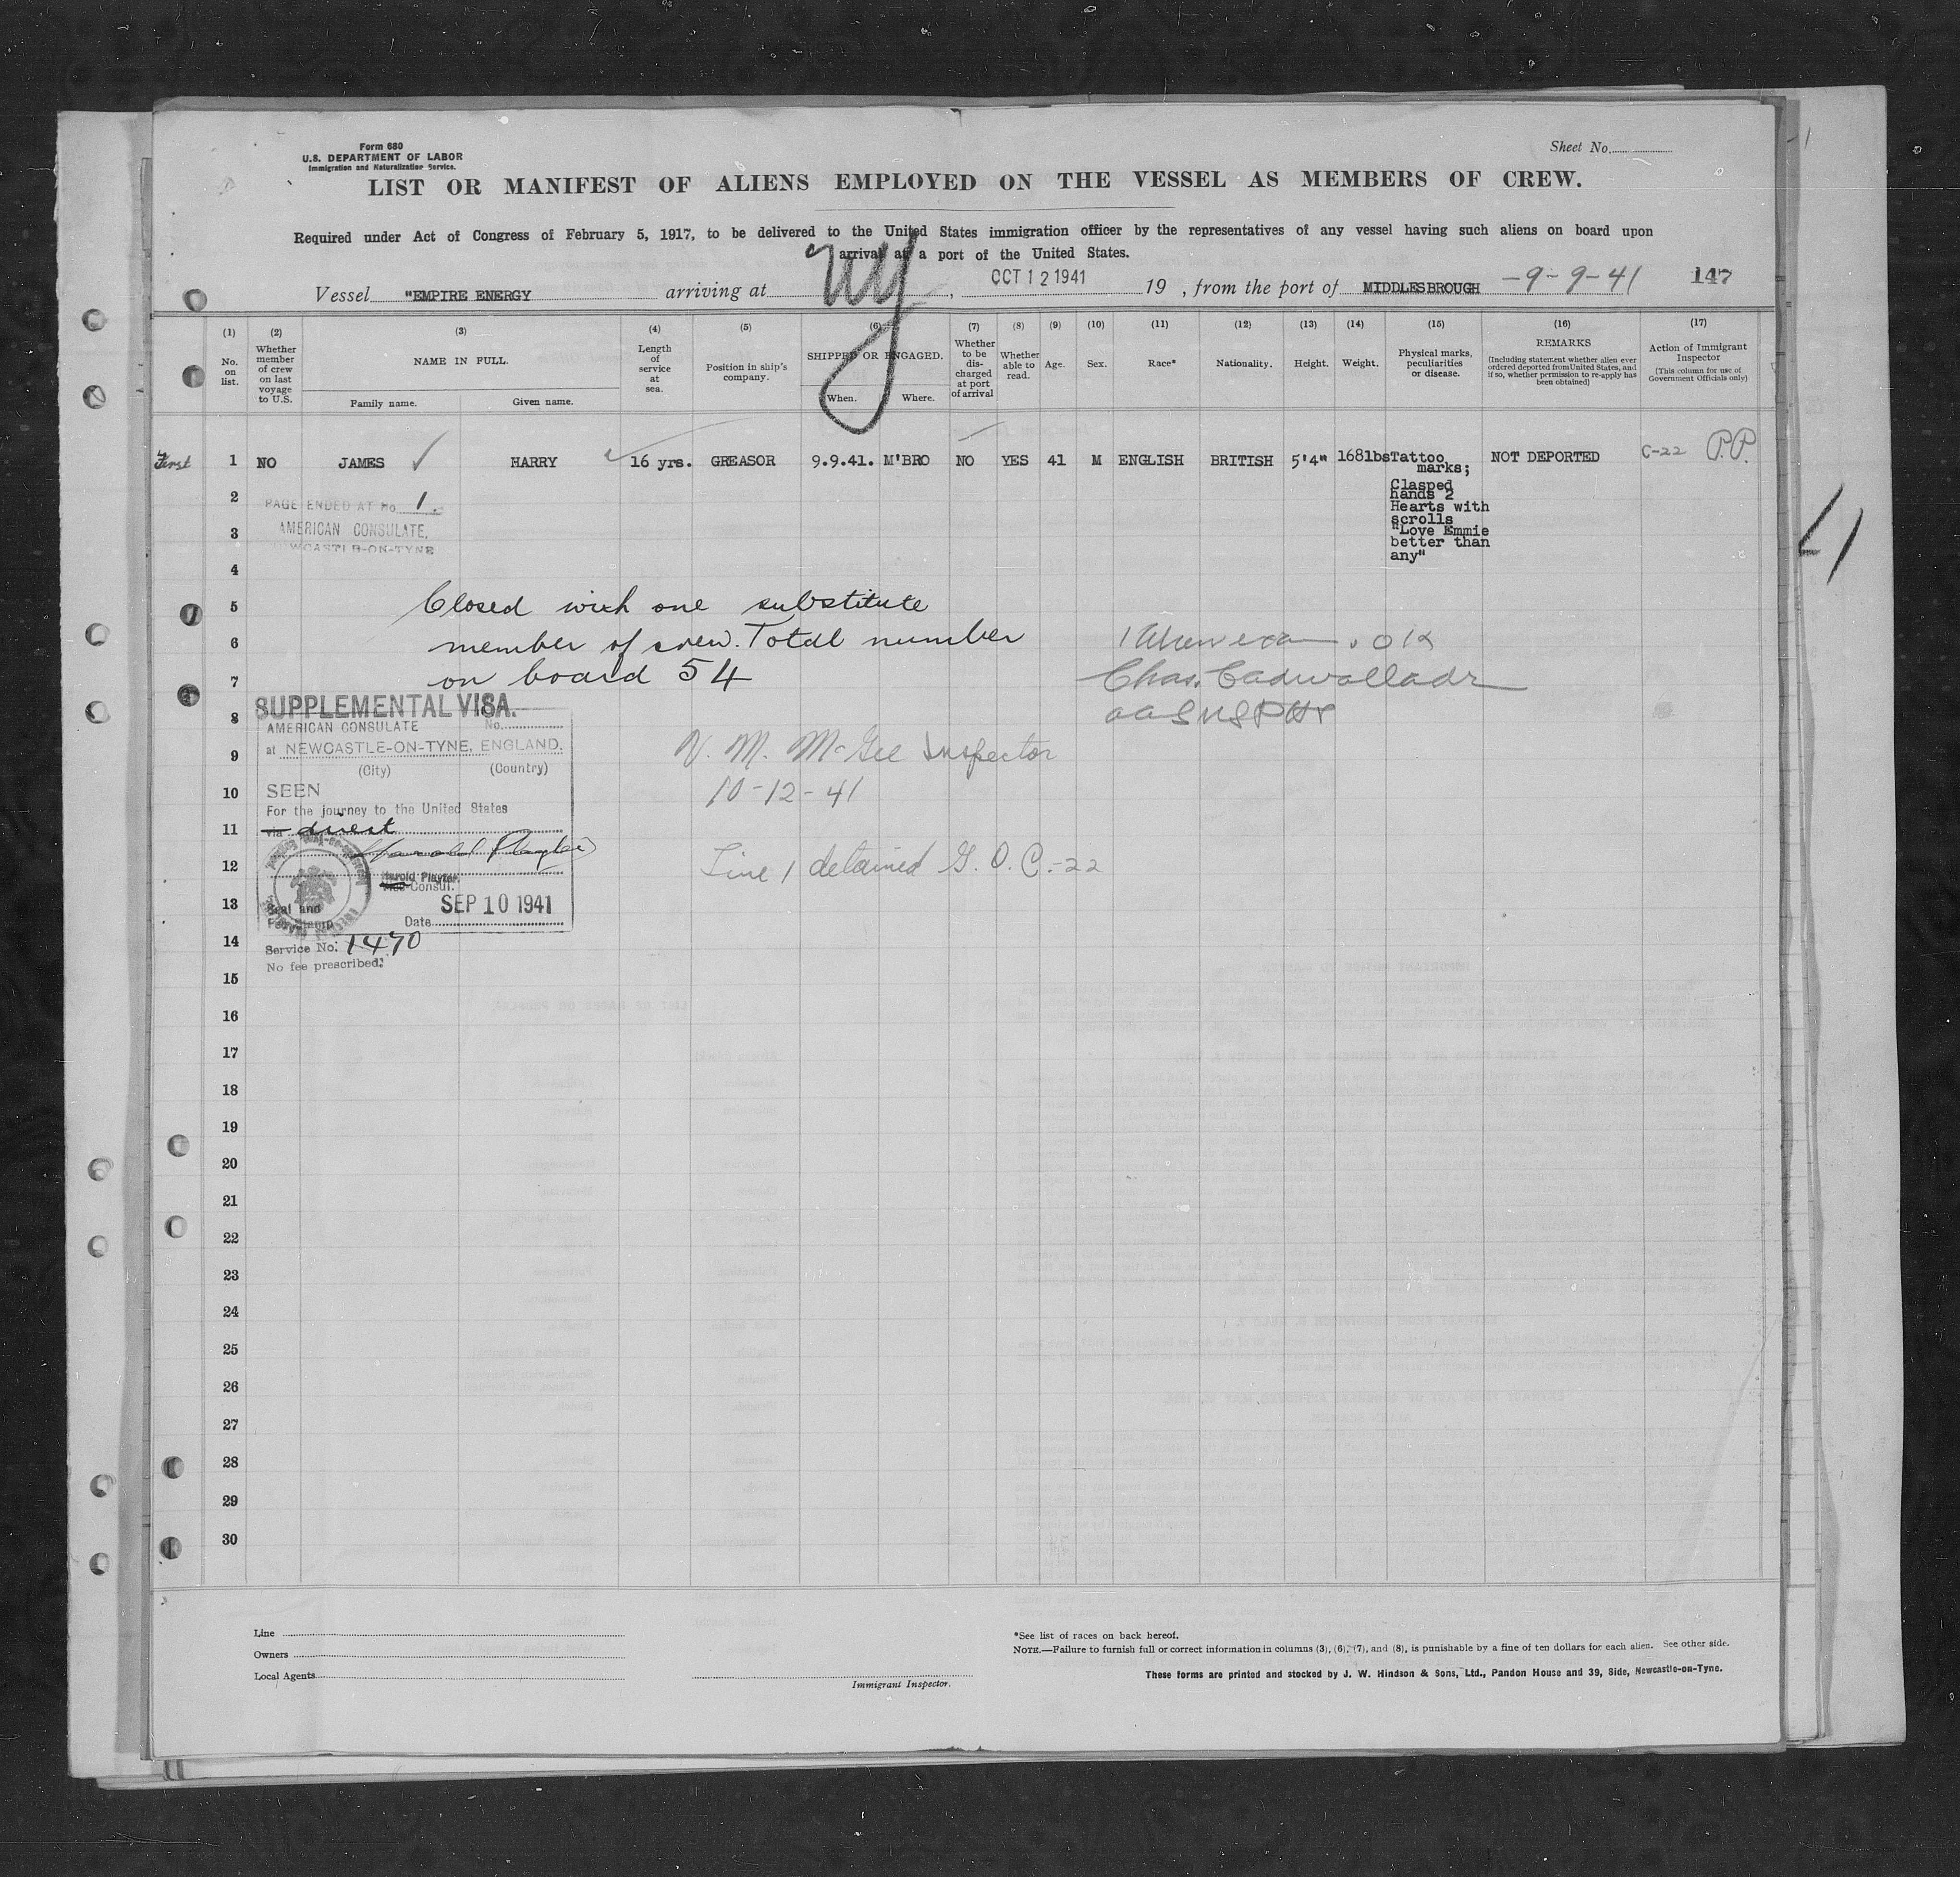 Form 680
U.S. DEPARTMENT OF LABOR
Immigration and Naturalization Service.
Sheet No.
LIST OR MANIFEST OF ALIENS EMPLOYED ON THE VESSEL AS MEMBERS OF CREW.
Required under Act of Congress of February 5, 1917, to be delivered to the United States immigration officer by the representatives of any vessel having such aliens on board upon
arrival at a port of the United States.
Vessel "EMPIRE ENERGY arriving at NY, OCT 12 1941 19 , from the port of MIDDLESBROUGH -9-9-41 147
(1) (2) (3) (4) (5) (6) (7) (8) (9) (10) (11) (12) (13) (14) (15) (16) (17)
No. on list.
Whether member of crew on last voyage to U.S.
NAME IN FULL.
Family name. Given name.
Length of service at sea.
Position in ship's company.
SHIPPED OR ENGAGED.
When. Where.
Whether to be discharged at port of arrival
Whether able to read.
Age.
Sex.
Race*
Nationality.
Height.
Weight.
Physical marks, peculiarities or disease.
REMARKS
(Including statement whether alien ever ordered deported from United States, and if so, whether permission to re-apply has been obtained)
Action of Immigrant Inspector
(This column for use of Government Officials only)
First 1 NO JAMES HARRY 16 yrs. GREASOR 9.9.41. M'BRO NO YES 41 M ENGLISH BRITISH 5'4" 168lbs Tattoo NOT DEPORTED C-22 P.P.
marks;
Clasped
hands 2
Hearts with
scrolls
"Love Emmie
better than
any"
2
PAGE ENDED AT No 1.
AMERICAN CONSULATE,
3
NEWCASTLE-ON-TYNE
4
5 Closed with one substitute
6 member of crew. Total number
7 on board 54
Chas. Cadwalladr
SUPPLEMENTAL VISA.
8 AMERICAN CONSULATE No.
at NEWCASTLE-ON-TYNE, ENGLAND.
(City) (Country)
9 V. M. McGee Inspector
10 10-12-41
SEEN
For the journey to the United States
11 via direct
12 Line 1 detained G. O. C.-22
Harold Playter
Harold Playter.
Vice Consul.
13 Seal and
Fee Stamp Date SEP 10 1941
14 Service No. 1470
No fee prescribed.
15
16
17
18
19
20
21
22
23
24
25
26
27
28
29
30
Line
Owners
Local Agents
Immigrant Inspector.
*See list of races on back hereof.
NOTE.—Failure to furnish full or correct information in columns (3), (6), (7), and (8), is punishable by a fine of ten dollars for each alien. See other side.
These forms are printed and stocked by J. W. Hindson & Sons, Ltd., Pandon House and 39, Side, Newcastle-on-Tyne.